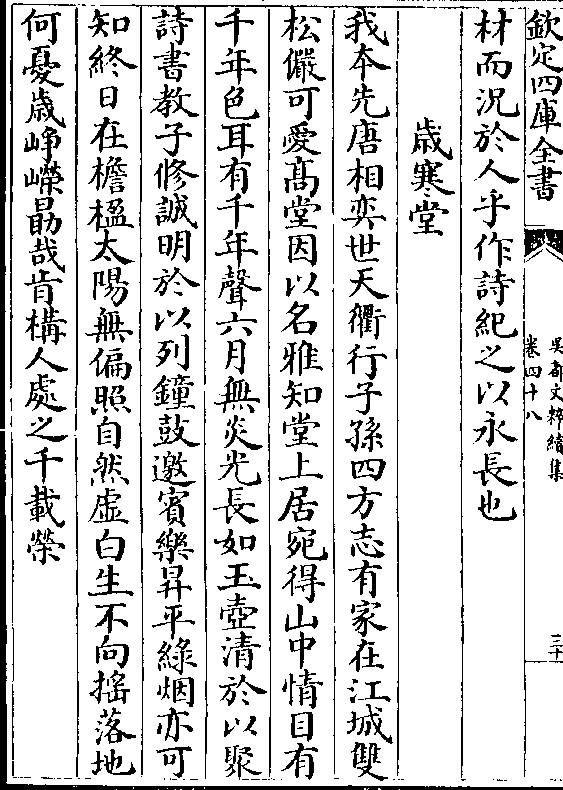 欽定四庫全書
吳都文粹續集
卷四十八
三十
材而況於人乎作詩紀之以永長也
歲寒堂
我本先唐相奕世天衢行子孫四方志有家在江城雙
松儼可愛高堂因以名雅知堂上居宛得山中情目有
千年色耳有千年聲六月無炎光長如玉壺清於以聚
詩書教子修誠明於以列鐘鼓邀賓樂昇平綠烟亦可
知終日在檐楹太陽無偏照自然虛白生不向搖落地
何憂歲崢嶸勗哉肯構人處之千載榮